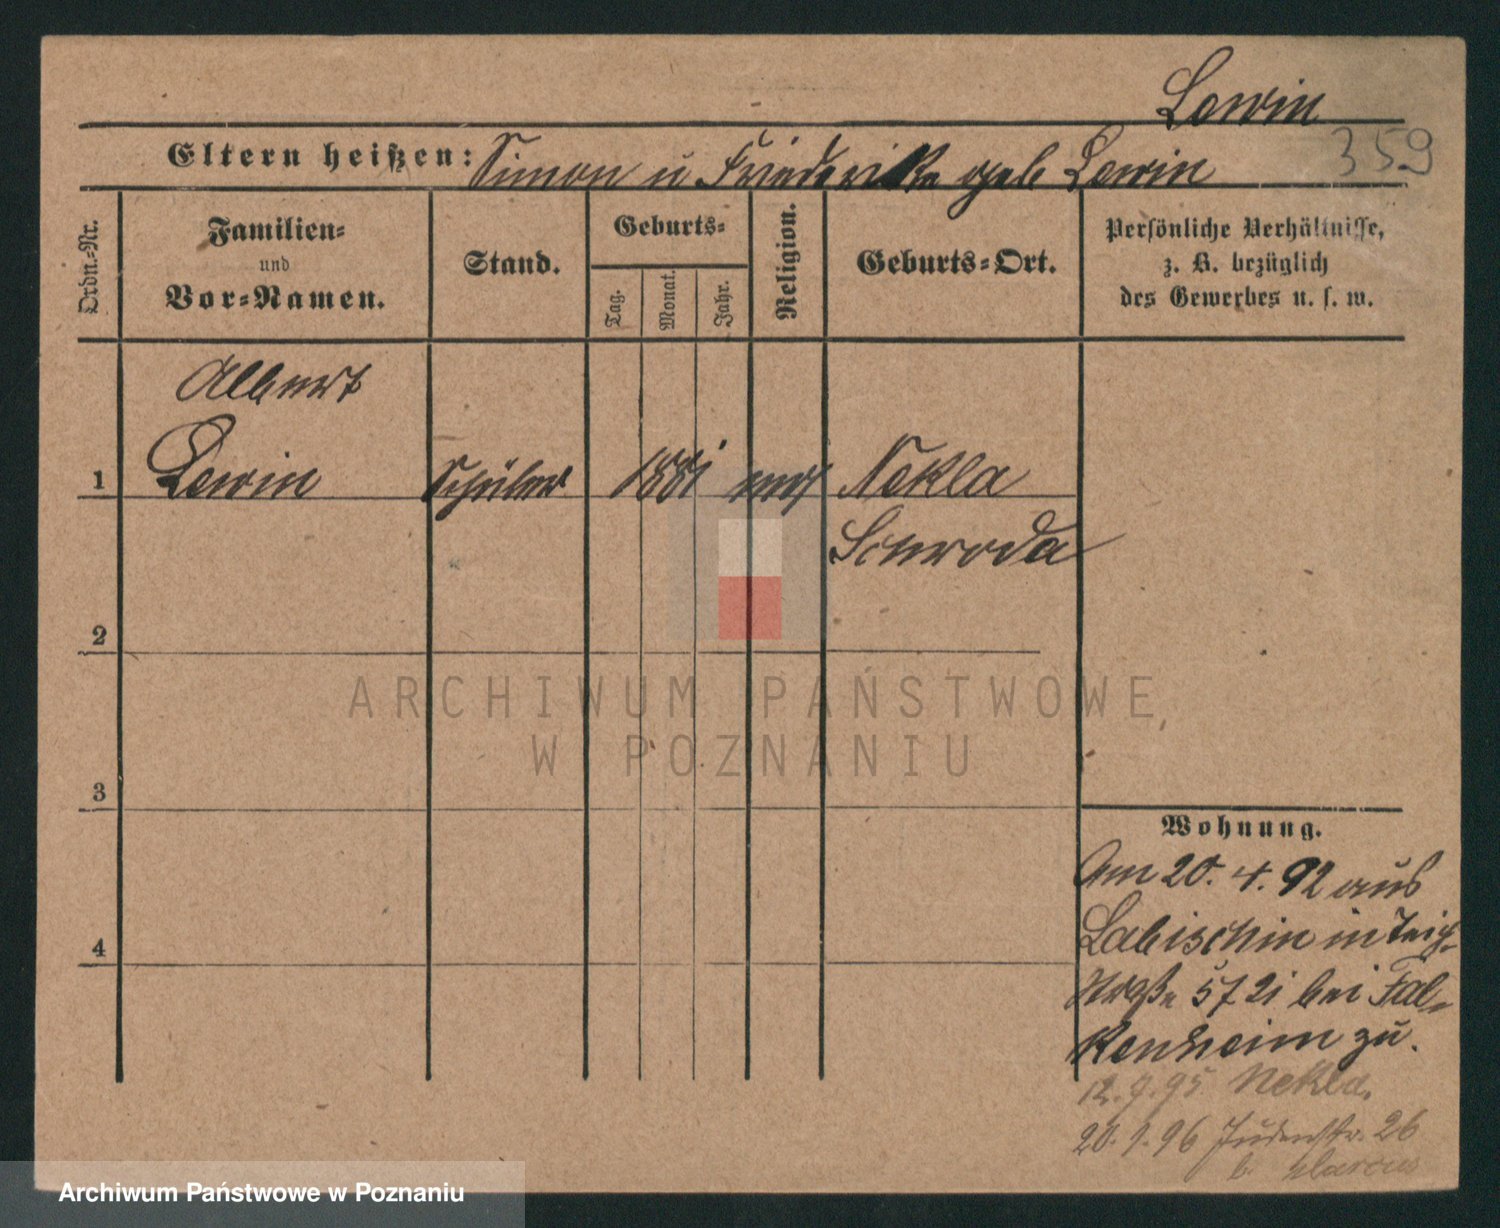 Lewin
359
Eltern heißen: Simon u Friederike geb Lewin
Ordn.-Nr.
Familien-
und
Vor-Namen.
Stand.
Geburts-
Tag.
Monat.
Jahr.
Religion.
Geburts-Ort.
Persönliche Verhältnisse,
z. B. bezüglich
des Gewerbes u. s. w.
Albert
1 Lewin Schüler 1881 mos Nekla
Schroda
2
ARCHIWUM PAŃSTWOWE
W POZNANIU
3
Wohnung.
Am 20. 4. 92 aus
Labischin in Teich-
4
straße 5 bei Fal-
kenheim zu.
12. 9. 95 Nekla.
20. 1. 96 Judenstr. 26
b. Marcus
Archiwum Państwowe w Poznaniu